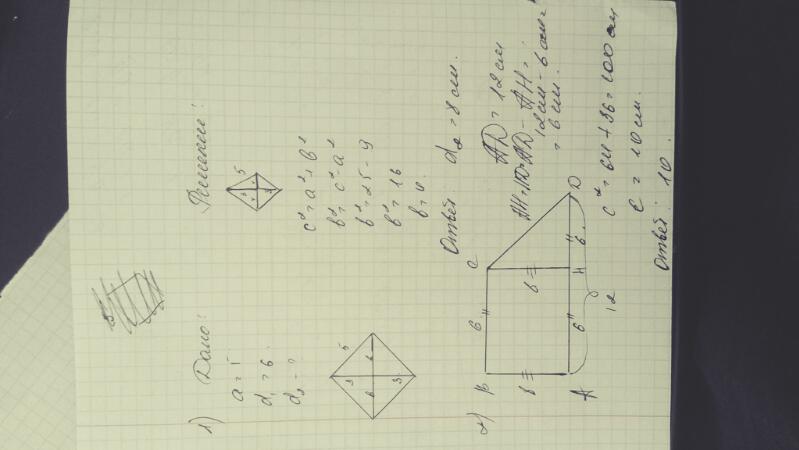 1) Дано:
a = 5
d₁ = 6
d₂ - ?
5
3
3
в
в
Решение:
5
3
3
c² = a² + b²
b² = c² - a²
b² = 25 - 9
b² = 16
b = 4.
Ответ: d₂ = 8 см.
2)
B
6
C
8
8
A
6
H
6
D
12
AD = 12 см
AH = HD = AD - AH =
12 см - 6 см =
= 6 см.
c² = 64 + 36 = 100 см
c = 10 см.
Ответ: 10.